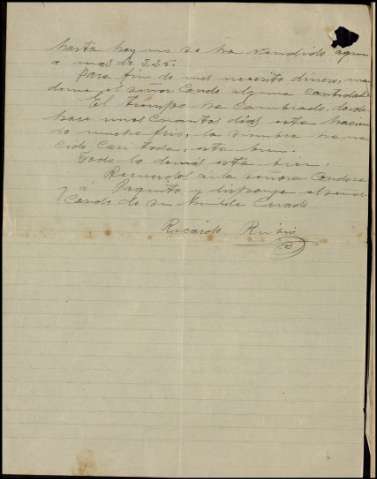 hasta hoy no se ha vendido aqui
a mas de 5.25.
Para fin de mes necesito dinero, man
deme el señor Conde alguna cantidad.
El tiempo ha cambiado, desde
hace unos cuantos dias esta hacien
do mucho frio, la simbra ha na
cido casi toda, esta bien.
Todo lo demás esta bien.
Recuerdos a la señora Condesa
a Paquito y al señor
Conde de su humilde Criado
Ricardo Rubio